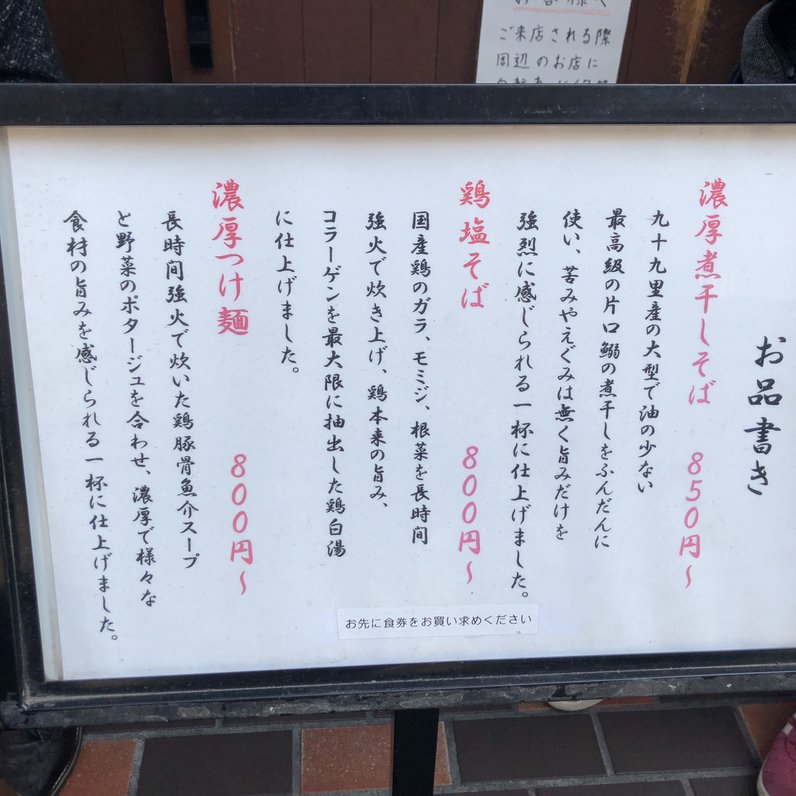 ご来店される際
周辺のお店に
お品書き
濃厚煮干しそば 850円~
九十九里産の大型で油の少ない
最高級の片口鰯の煮干しをふんだんに
使い、苦みやえぐみは無く旨みだけを
強烈に感じられる一杯に仕上げました。
鶏塩そば 800円~
国産鶏のガラ、モミジ、根菜を長時間
強火で炊き上げ、鶏本来の旨み、
コラーゲンを最大限に抽出した鶏白湯
に仕上げました。
濃厚つけ麺 800円~
長時間強火で炊いた鶏豚骨魚介スープ
と野菜のポタージュを合わせ、濃厚で様々な
食材の旨みを感じられる一杯に仕上げました。
お先に食券をお買い求めください